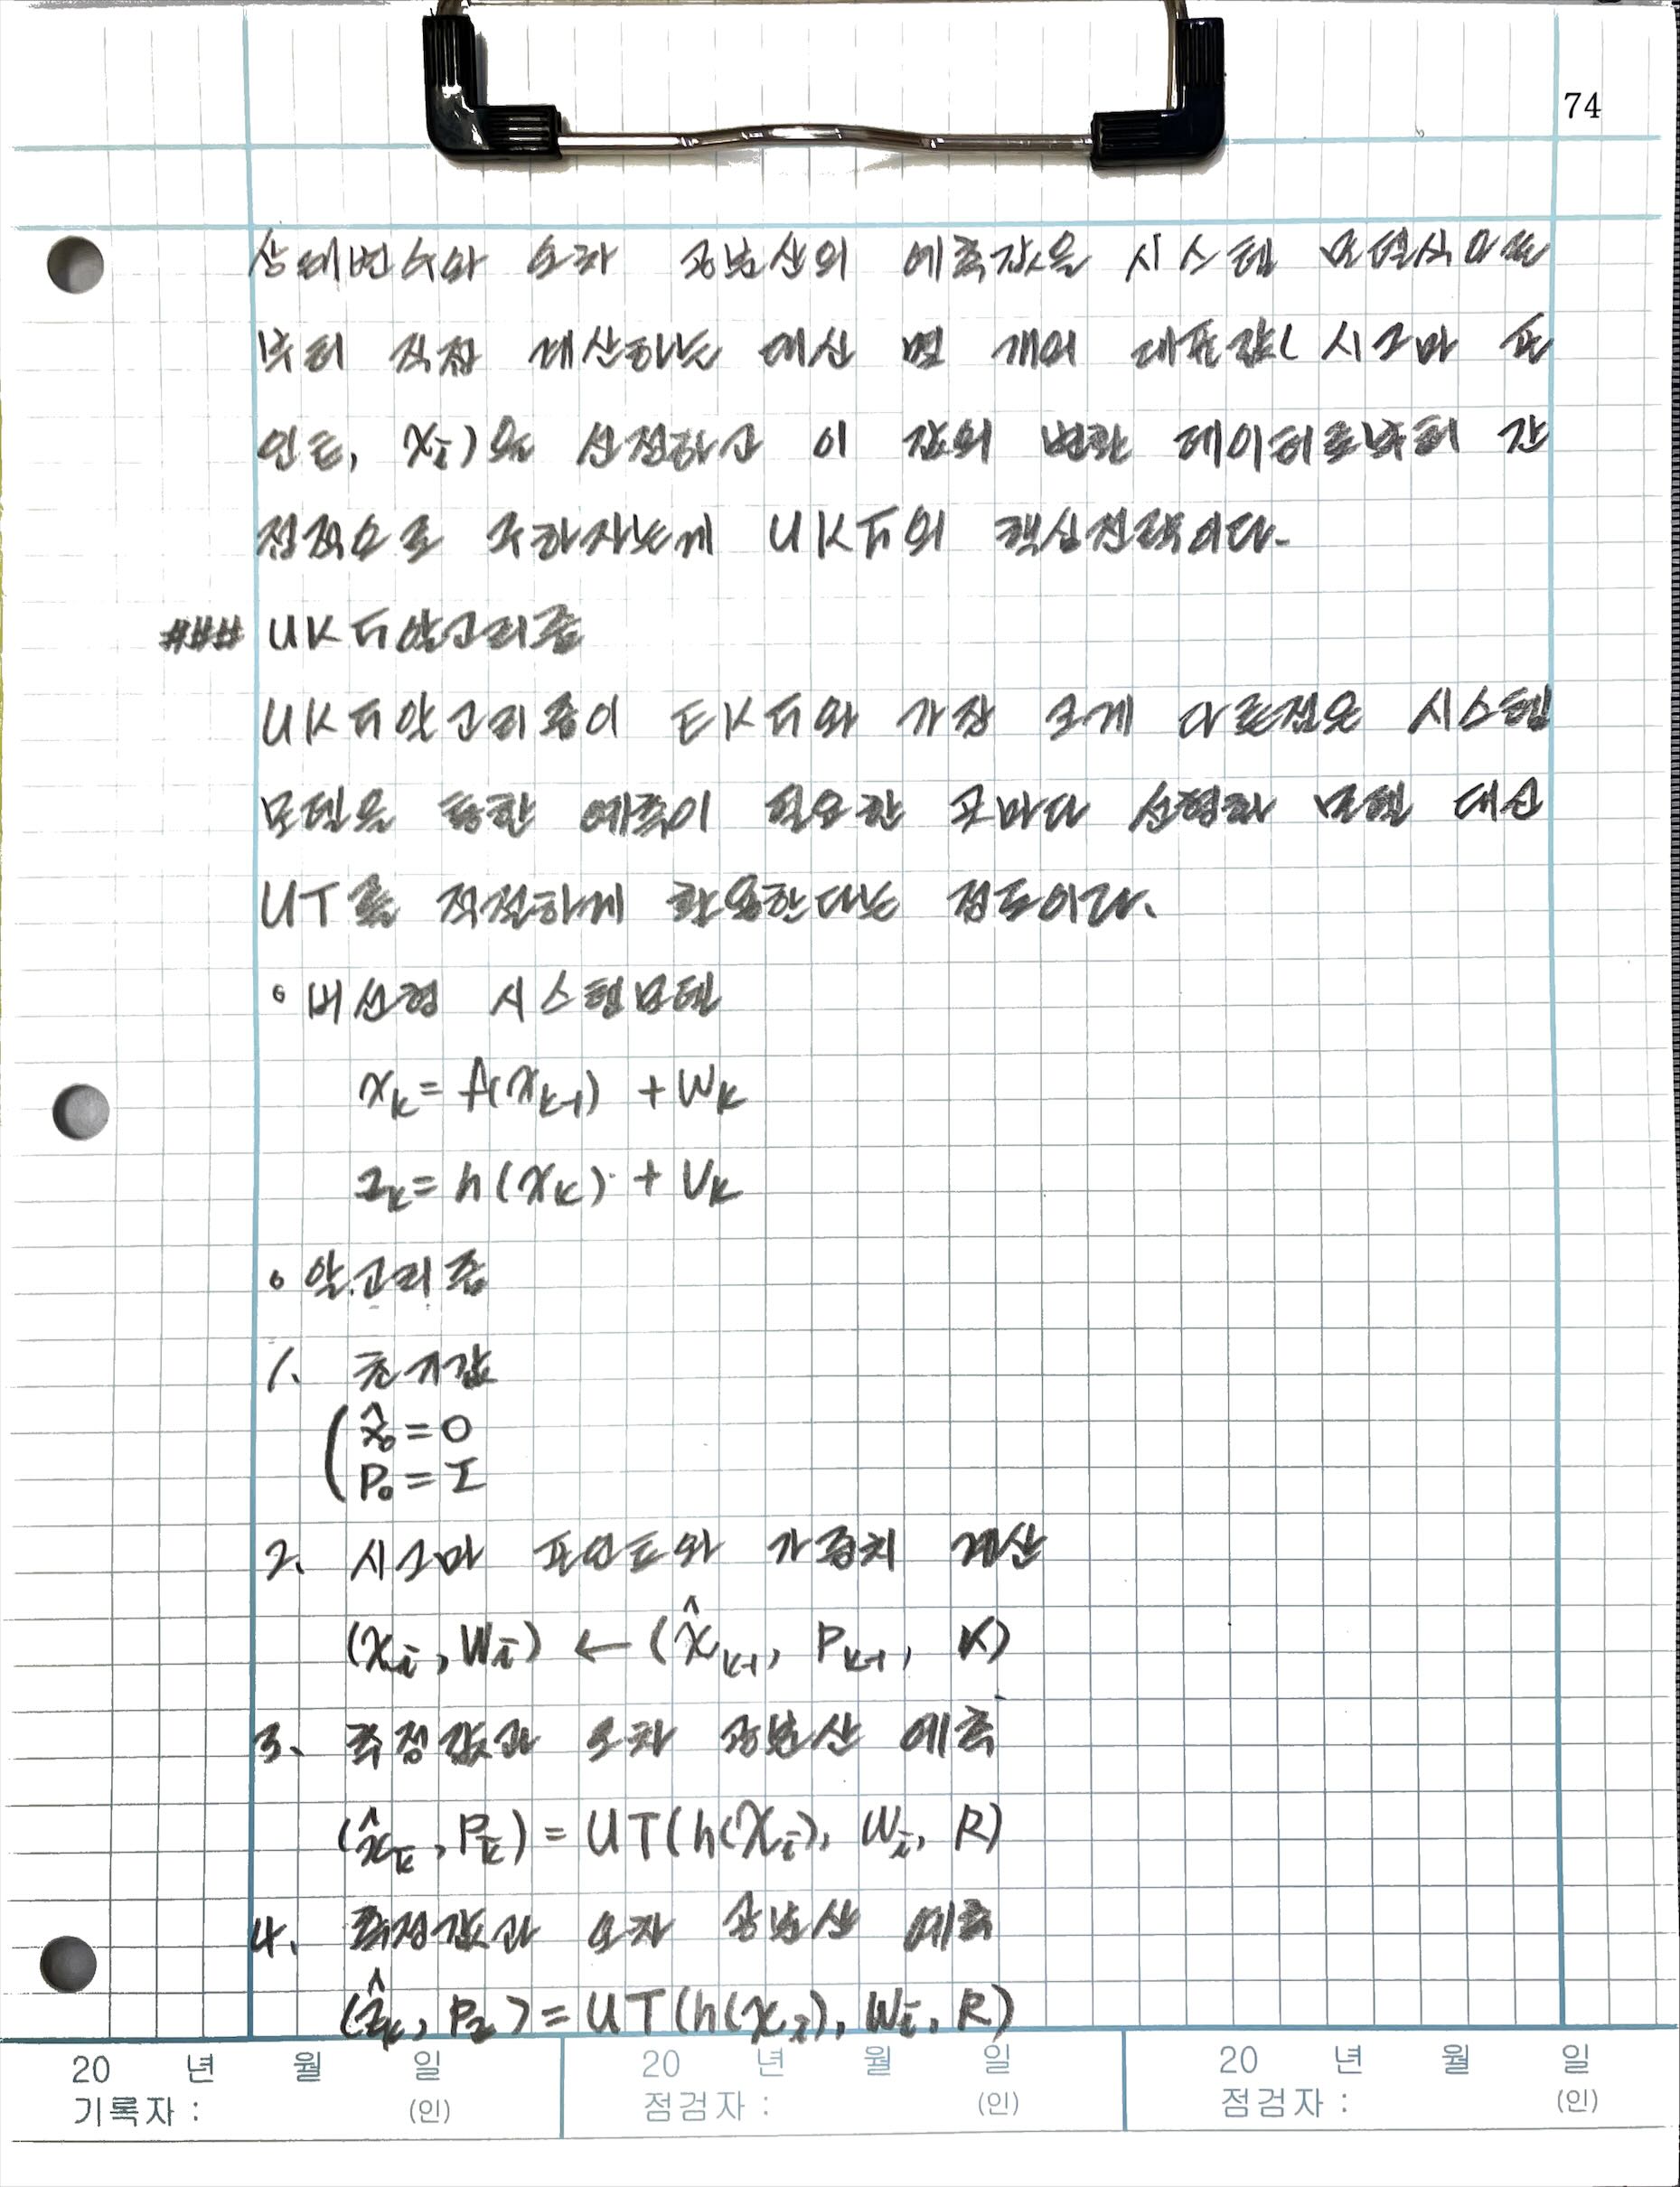 74
상태변수와 오차 공분산의 예측값을 시스템 모델식으로
부터 직접 계산하는 대신 몇 개의 대표값(시그마 포
인트, χi)을 선정하고 이 값의 변환 데이터로부터 간
접적으로 구하자는게 UKF의 핵심전략이다.
### UKF알고리즘
UKF알고리즘이 EKF와 가장 크게 다른점은 시스템
모델을 통한 예측이 필요한 곳마다 선형화 모델 대신
UT를 적절하게 활용한다는 점도이다.
◦ 비선형 시스템모델
xk = f(xk-1) + wk
zk = h(xk) + vk
◦ 알고리즘
1. 초기값
( x̂0 = 0
P0 = I
2. 시그마 포인트와 가중치 계산
(χi, Wi) ← (x̂k-1, Pk-1, κ)
3. 측정값과 오차 공분산 예측
(x̂k̄, Pk̄) = UT(h(χi), Wi, R)
4. 측정값과 오차 공분산 예측
(ẑk, Pz) = UT(h(χi), Wi, R)
20 년 월 일 20 년 월 일 20 년 월 일
기록자 : (인) 점검자 : (인) 점검자 : (인)